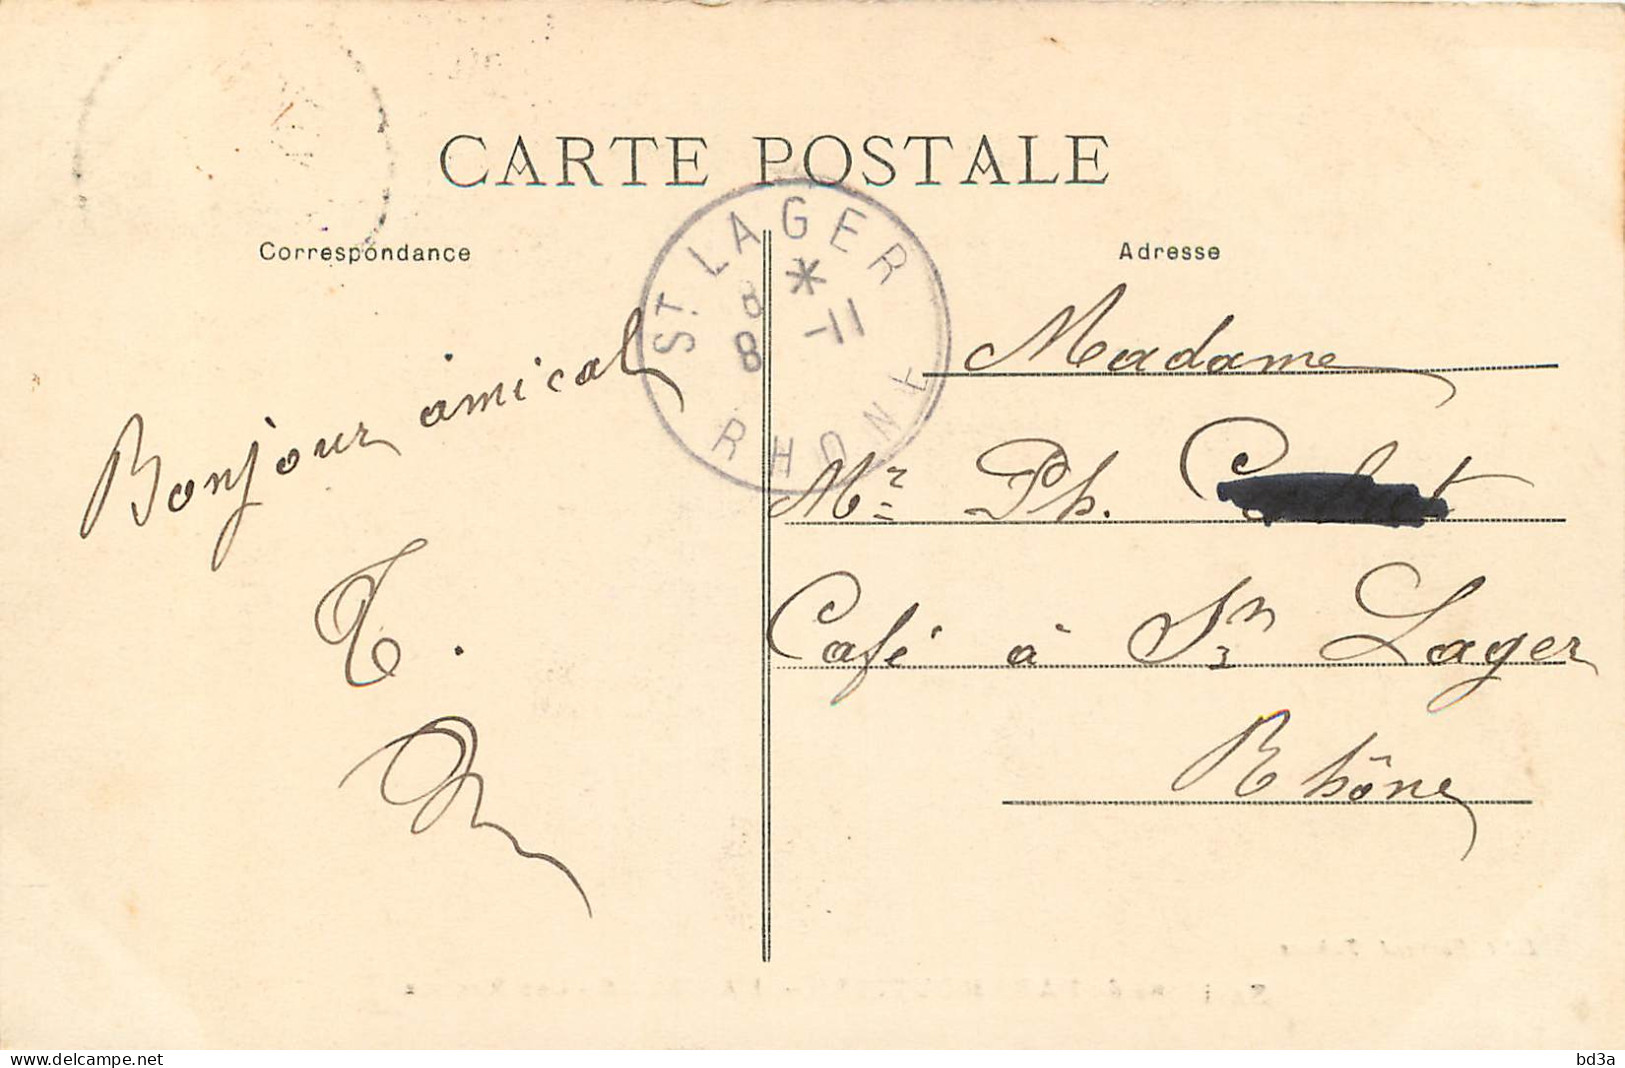 CARTE POSTALE
Correspondance
Adresse
ST LAGER
8 *
8 -11
RHONE
Bonjour amical
T.
Madame
Mr Ph.
Café à St Lager
Rhône
delcampe.net
bd3a